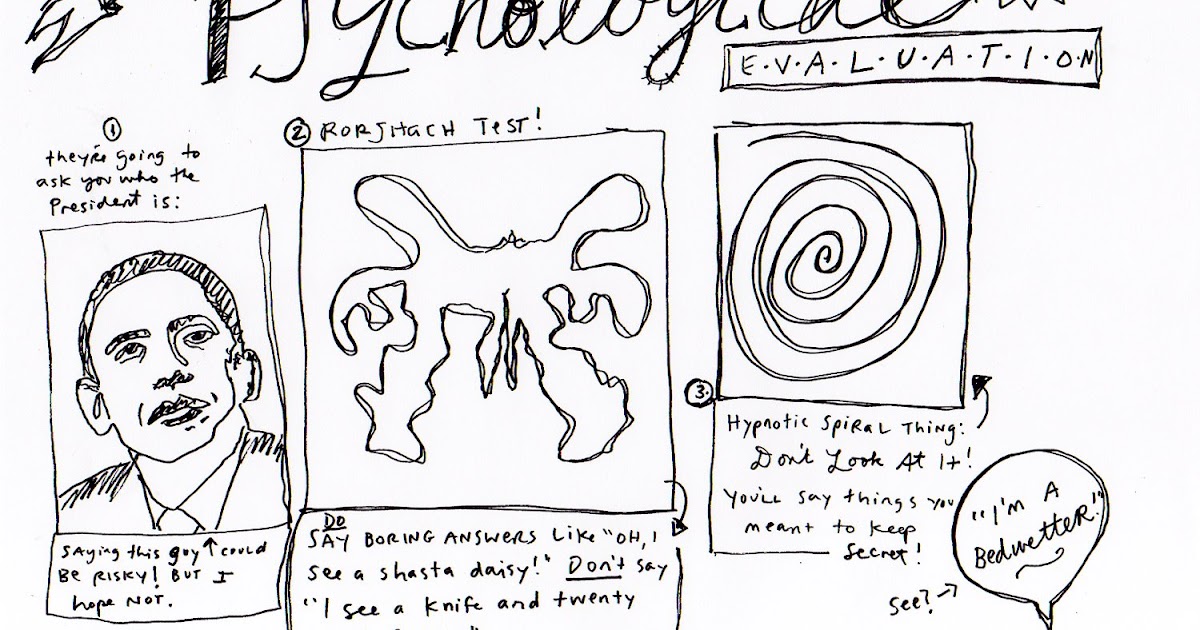 Psychological
E·V·A·L·U·A·T·I·O·N
①
they're going to
ask you who the
President is:
saying this guy ↑ could
BE RISKY! BUT I
hope NOT.
② RORSHACH TEST!
DO
SAY BORING ANSWERS Like "OH, I
see a shasta daisy!" Don't say
"I see a knife and twenty
③.
Hypnotic Spiral Thing:
Don't Look At It!
You'll say things you
meant to keep
secret!
"I'm A
Bedwetter!"
see? →